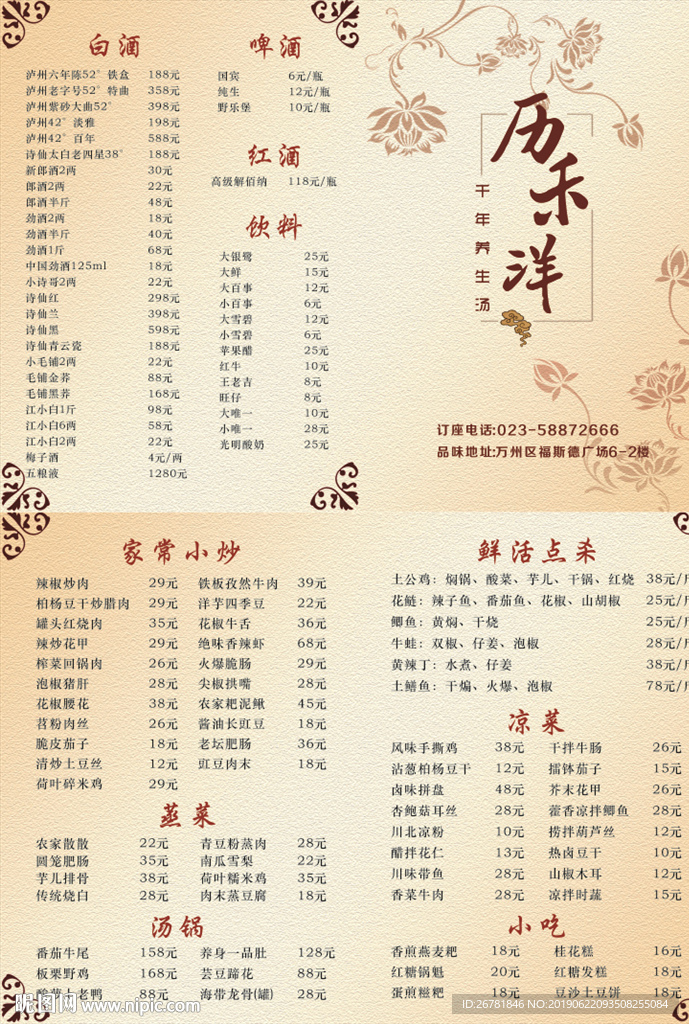 白酒
泸州六年陈52°铁盒 188元
泸州老字号52°特曲 358元
泸州紫砂大曲52° 398元
泸州42°淡雅 198元
泸州42°百年 588元
诗仙太白老四星38° 188元
新郎酒2两 30元
郎酒2两 22元
郎酒半斤 48元
劲酒2两 18元
劲酒半斤 40元
劲酒1斤 68元
中国劲酒125ml 18元
小诗哥2两 22元
诗仙红 298元
诗仙兰 398元
诗仙黑 598元
诗仙青云瓷 188元
小毛铺2两 22元
毛铺金荞 88元
毛铺黑荞 168元
江小白1斤 98元
江小白6两 58元
江小白2两 22元
梅子酒 4元/两
五粮液 1280元
啤酒
国宾 6元/瓶
纯生 12元/瓶
野乐堡 10元/瓶
红酒
高级解佰纳 118元/瓶
饮料
大银鹭 25元
大鲜 15元
大百事 12元
小百事 6元
大雪碧 12元
小雪碧 6元
苹果醋 25元
红牛 10元
王老吉 8元
旺仔 8元
大唯一 10元
小唯一 28元
光明酸奶 25元
历禾洋
千年养生汤
订座电话:023-58872666
品味地址:万州区福斯德广场6-2楼
家常小炒
辣椒炒肉 29元 铁板孜然牛肉 39元
柏杨豆干炒腊肉 29元 洋芋四季豆 22元
罐头红烧肉 35元 花椒牛舌 36元
辣炒花甲 29元 绝味香辣虾 68元
榨菜回锅肉 26元 火爆脆肠 29元
泡椒猪肝 28元 尖椒拱嘴 28元
花椒腰花 38元 农家耙泥鳅 45元
苕粉肉丝 26元 酱油长豇豆 18元
脆皮茄子 18元 老坛肥肠 36元
清炒土豆丝 12元 豇豆肉末 18元
荷叶碎米鸡 29元
蒸菜
农家散散 22元 青豆粉蒸肉 28元
圆笼肥肠 35元 南瓜雪梨 22元
芋儿排骨 38元 荷叶糯米鸡 35元
传统烧白 28元 肉末蒸豆腐 18元
汤锅
番茄牛尾 158元 养身一品肚 128元
板栗野鸡 168元 芸豆蹄花 88元
老鸭 88元 海带龙骨(罐) 28元
鲜活点杀
土公鸡：焖锅、酸菜、芋儿、干锅、红烧 38元/
花鲢：辣子鱼、番茄鱼、花椒、山胡椒 25元/
鲫鱼：黄焖、干烧 25元/
牛蛙：双椒、仔姜、泡椒 28元/
黄辣丁：水煮、仔姜 38元/
土鳝鱼：干煸、火爆、泡椒 78元/
凉菜
风味手撕鸡 38元 干拌牛肠 26元
沾葱柏杨豆干 12元 擂钵茄子 15元
卤味拼盘 48元 芥末花甲 26元
杏鲍菇耳丝 28元 藿香凉拌鲫鱼 28元
川北凉粉 10元 捞拌葫芦丝 12元
醋拌花仁 13元 热卤豆干 10元
川味带鱼 28元 山椒木耳 12元
香菜牛肉 28元 凉拌时蔬 15元
小吃
香煎燕麦粑 18元 桂花糕 16元
红糖锅魁 20元 红糖发糕 18元
蛋煎糍粑 18元 豆沙土豆饼 18元
昵图网 www.nipic.com
ID:26781846 NO:20190622093508255084